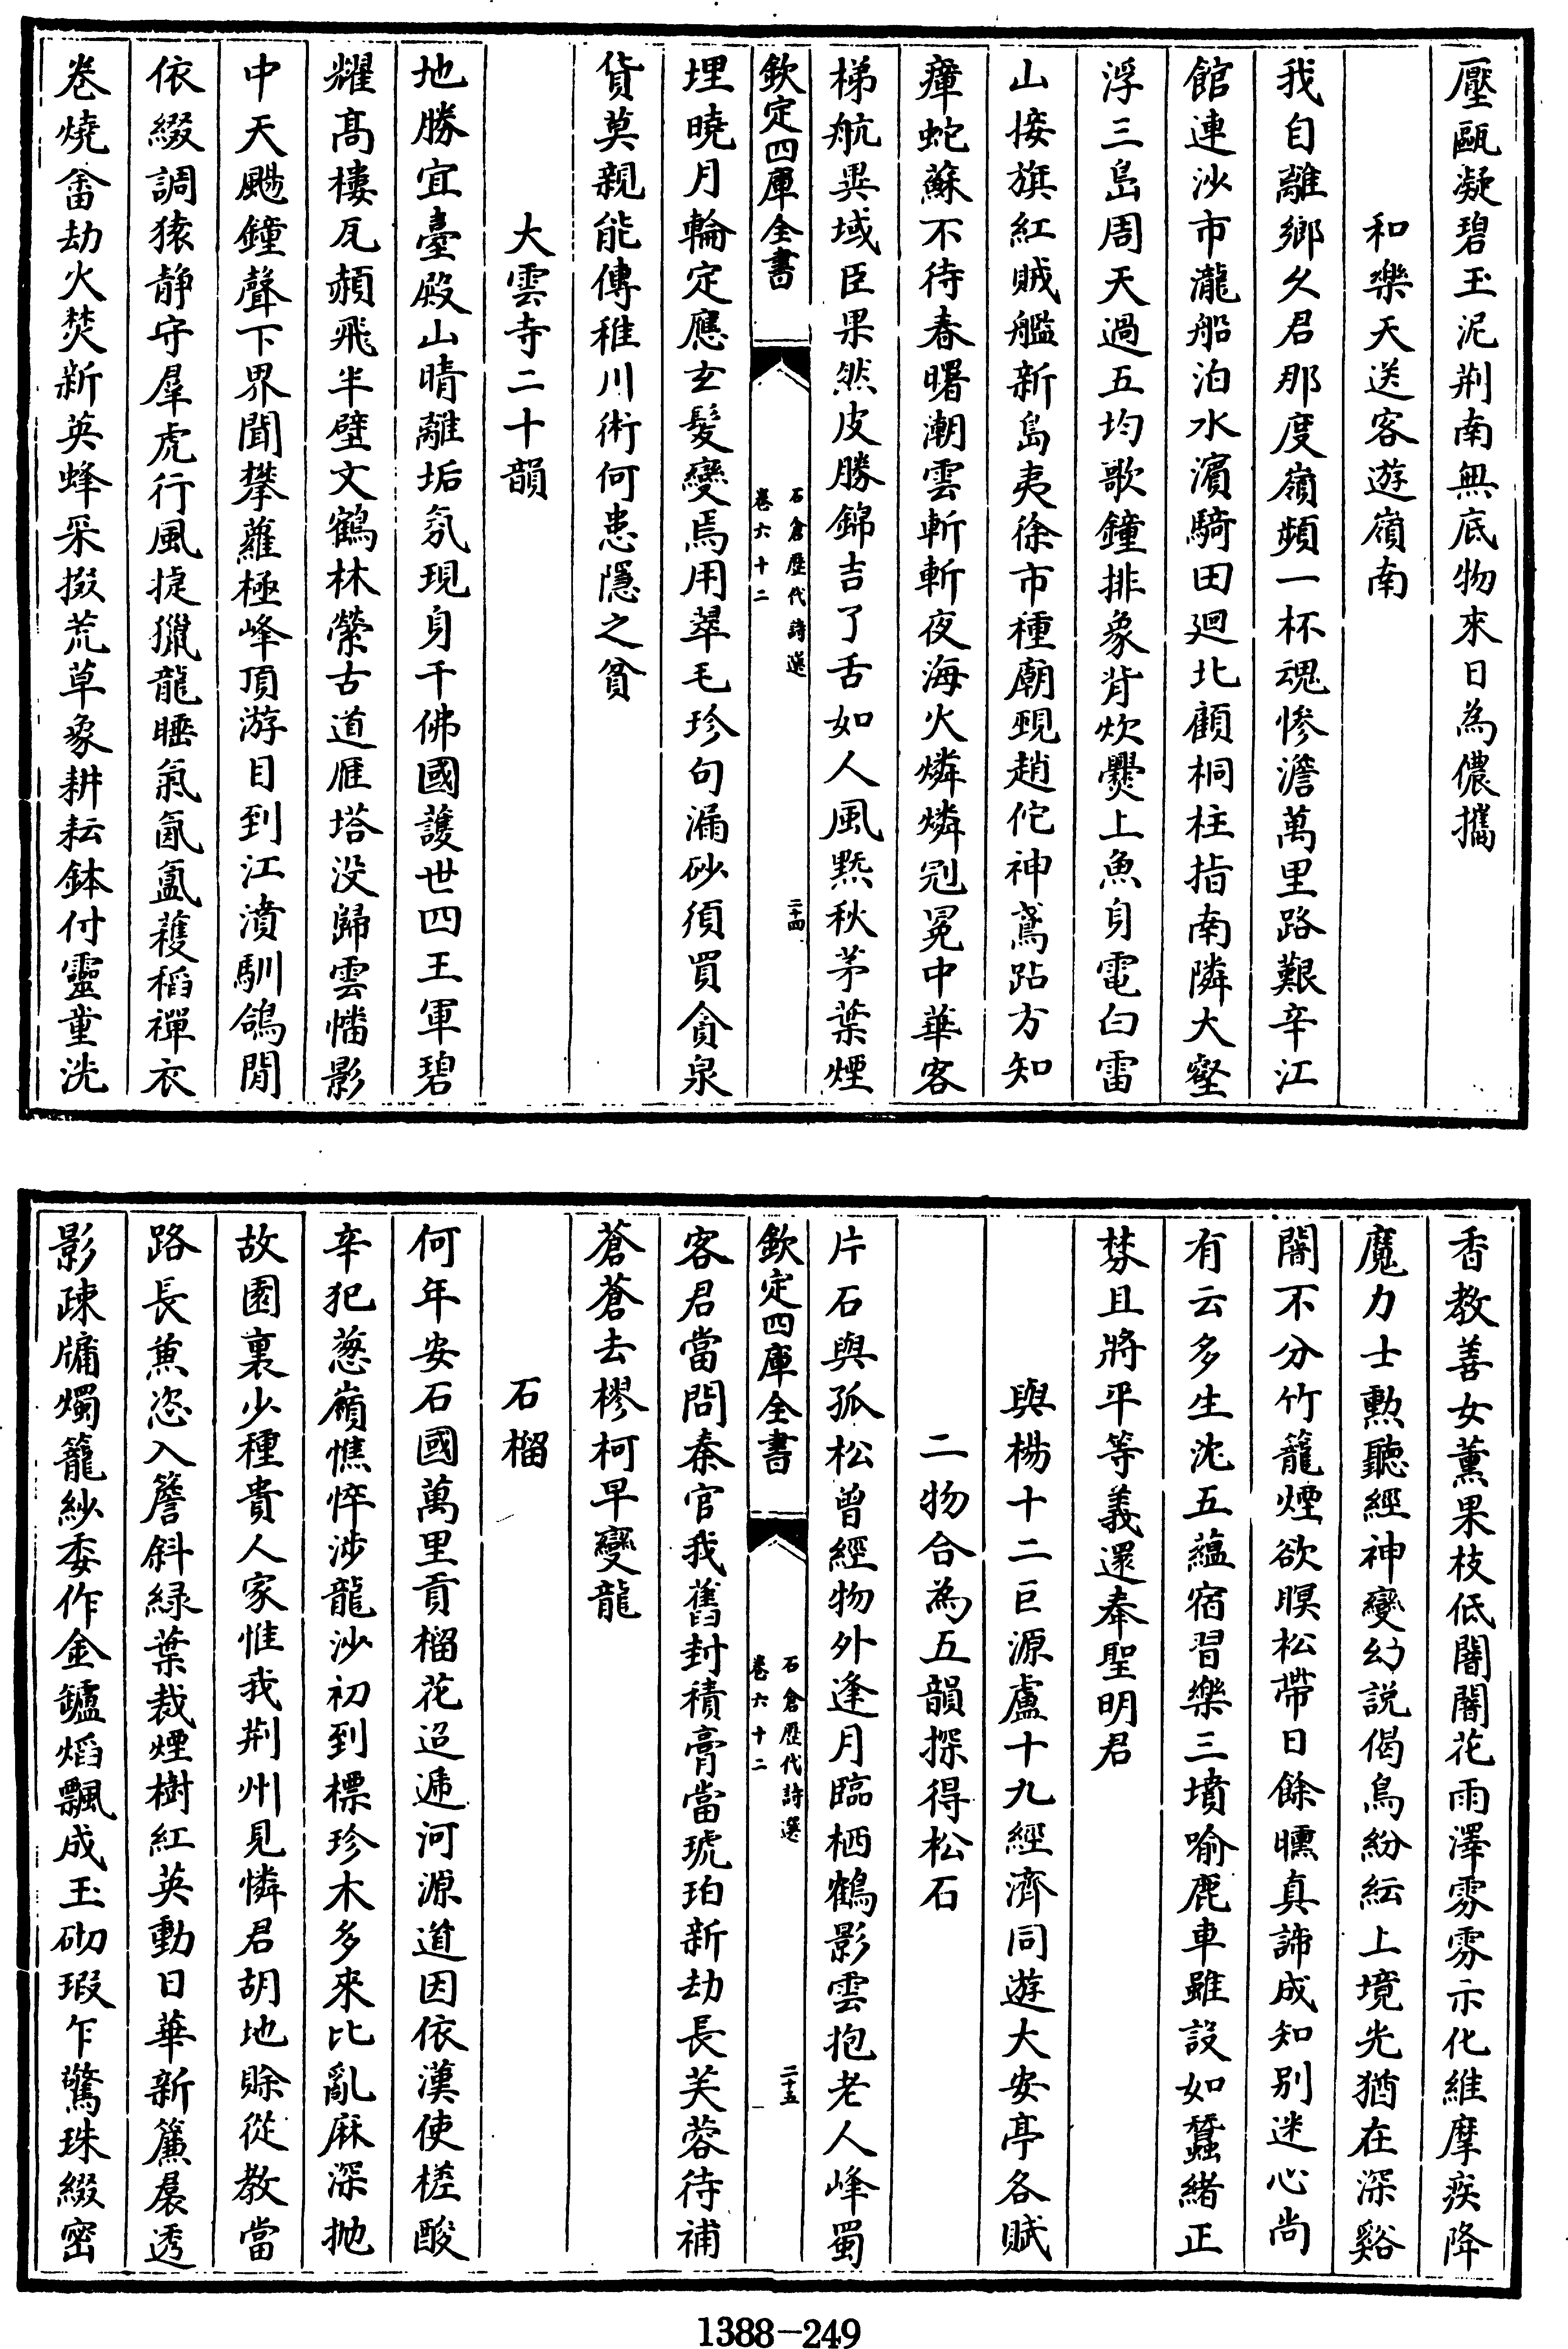 壓甌凝碧玉泥荆南無底物來日為儂攜
和樂天送客遊嶺南
我自離鄉久君那度嶺頻一杯魂慘澹萬里路艱辛江
館連沙市瀧船泊水濵騎田廻北顧桐柱指南隣大壑
浮三島周天過五均歌鐘排象背炊㸑上魚身電白雷
山接旗紅賊艦新島夷徐市種廟覡趙佗神鳶跕方知
瘴蛇蘇不待春曙潮雲斬斬夜海火燐燐冠冕中華客
梯航異域臣果然皮勝錦吉了舌如人風黙秋茅葉煙
欽定四庫全書
石倉歴代詩選
卷六十二
二十四
埋曉月輪定應玄髮變焉用翠毛珍句漏砂須買貪泉
貨莫親能傳稚川術何患隱之貧
大雲寺二十韻
地勝宜臺殿山晴離垢氛現身千佛國護世四王軍碧
耀髙樓瓦頳飛半壁文鶴林縈古道雁塔没歸雲幡影
中天颺鐘聲下界聞攀蘿極峰頂游目到江濆馴鴿閒
依綴調猿静守羣虎行風捷獵龍睡氣氤氳穫稻禪衣
卷燒畬劫火焚新英蜂采掇荒草象耕耘鉢付靈童洗
香教善女薰果枝低闇闇花雨澤雰雰示化維摩疾降
魔力士勲聽經神變幻説偈鳥紛紜上境光猶在深谿
闇不分竹籠煙欲暝松帶日餘曛真諦成知别迷心尚
有云多生沈五蘊宿習樂三墳喻鹿車雖設如蠶緒正
棼且將平等義還奉聖明君
與楊十二巨源盧十九經濟同遊大安亭各賦
二物合為五韻探得松石
片石與孤松曾經物外逢月臨栖鶴影雲抱老人峰蜀
欽定四庫全書
石倉歴代詩選
卷六十二
二十五
客君當問秦官我舊封積膏當琥珀新劫長芙蓉待補
蒼蒼去樛柯早變龍
石榴
何年安石國萬里貢榴花迢遞河源道因依漢使槎酸
辛犯葱嶺憔悴涉龍沙初到標珍木多來比亂麻深抛
故園裏少種貴人家惟我荆州見憐君胡地賒從教當
路長兼恣入簷斜緑葉裁煙樹紅英動日華新簾裊透
影疎牖燭籠紗委作金鑪焰飄成玉砌瑕乍驚珠綴密
1388-249